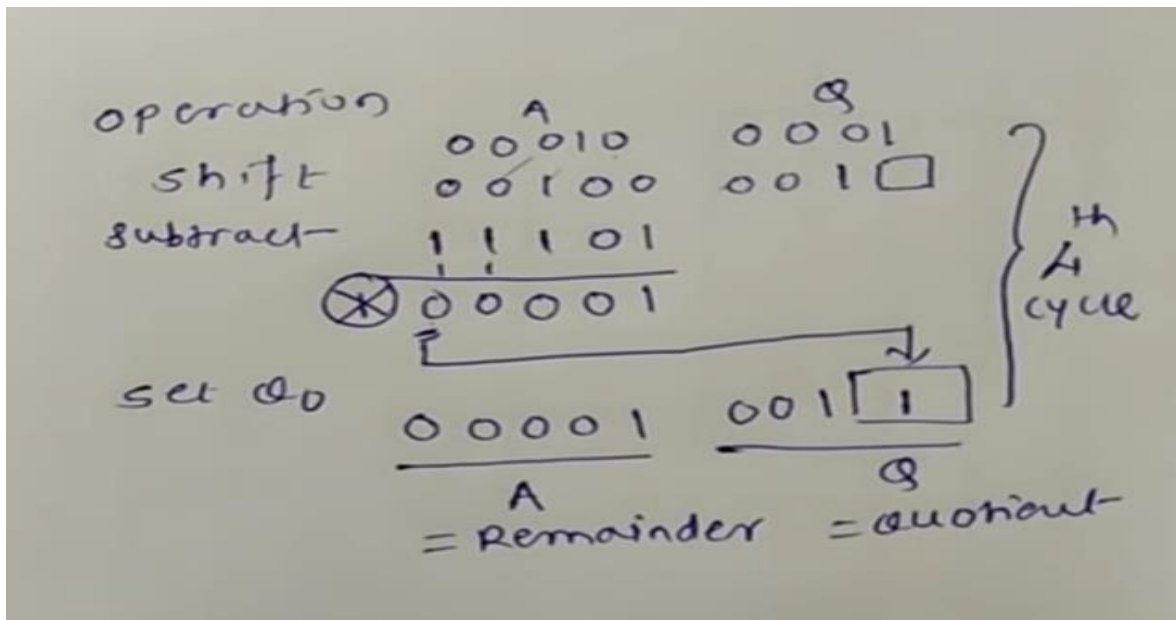 operation A Q
00010 0001
shift 00100 001
subtract 11101
1 1
1 00001
set Q0 00001 001 1
A Q
= Remainder = Quotient
4th cycle